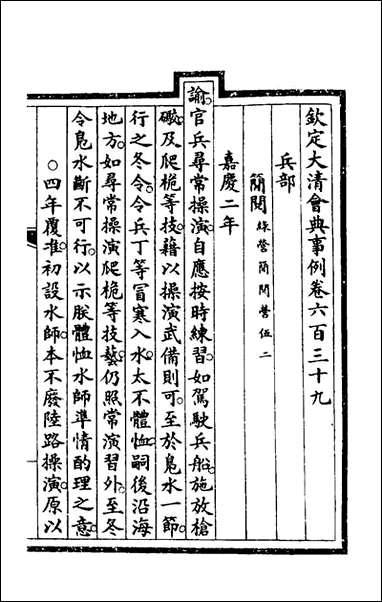 欽定大清會典事例卷六百三十九
兵部
簡閱 綠營簡閱營伍二
嘉慶二年
諭官兵尋常操演自應按時練習如駕駛兵船施放槍
礮及爬桅等技藉以操演武備則可至於鳧水一節
行之冬令令兵丁等冒寒入水太不體恤嗣後沿海
地方如尋常操演爬桅等技藝仍照常演習外至冬
令鳧水斷不可行以示朕體恤水師準情酌理之意
○四年覆准初設水師本不廢陸路操演原以